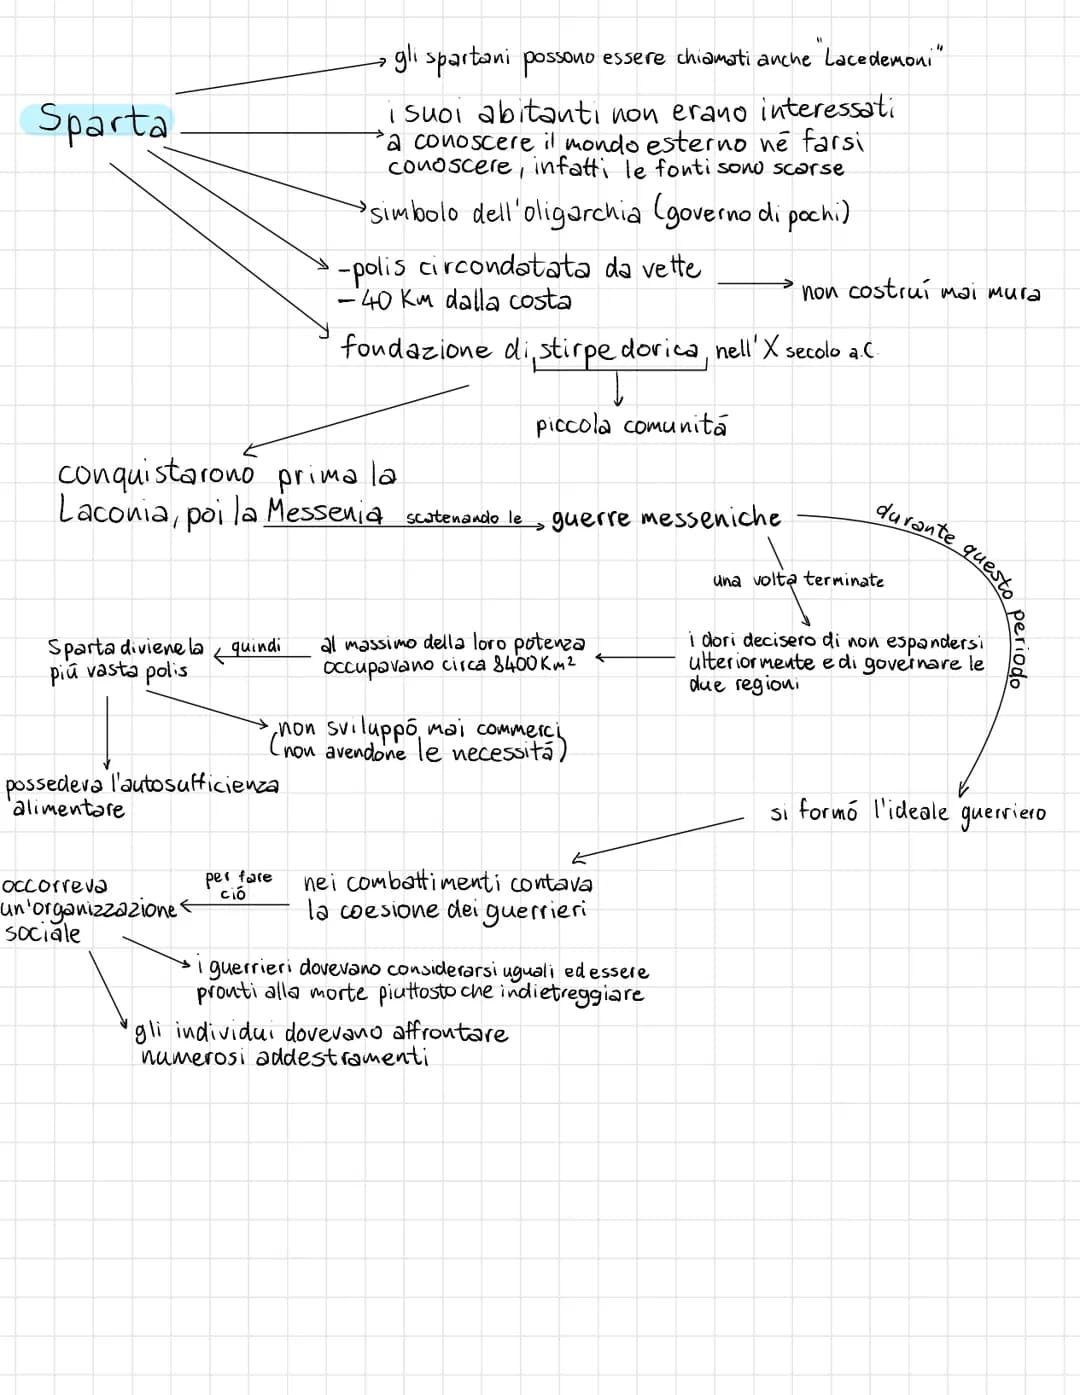 gli spartani possono essere chiamati anche "Lacedemoni"
Sparta
i suoi abitanti non erano interessati
a conoscere il mondo esterno né farsi
conoscere, infatti le fonti sono scarse
simbolo dell'oligarchia (governo di pochi)
-polis circondatata da vette
- 40 Km dalla costa
non costruí mai mura
fondazione di stirpe dorica, nell'X secolo a.C.
piccola comunitá
conquistarono prima la
Laconia, poi la Messenia scatenando le guerre messeniche
durante questo periodo
una volta terminate
i dori decisero di non espandersi
ulteriormente e di governare le
due regioni
al massimo della loro potenza
occupavano circa 8400 Km²
quindi
Sparta diviene la
piú vasta polis
non sviluppó mai commerci
(non avendone le necessitá)
possedeva l'autosufficienza
alimentare
si formó l'ideale guerriero
nei combattimenti contava
la coesione dei guerrieri
per fare
ció
occorreva
un'organizzazione
sociale
i guerrieri dovevano considerarsi uguali ed essere
pronti alla morte piuttosto che indietreggiare
gli individui dovevano affrontare
numerosi addestramenti